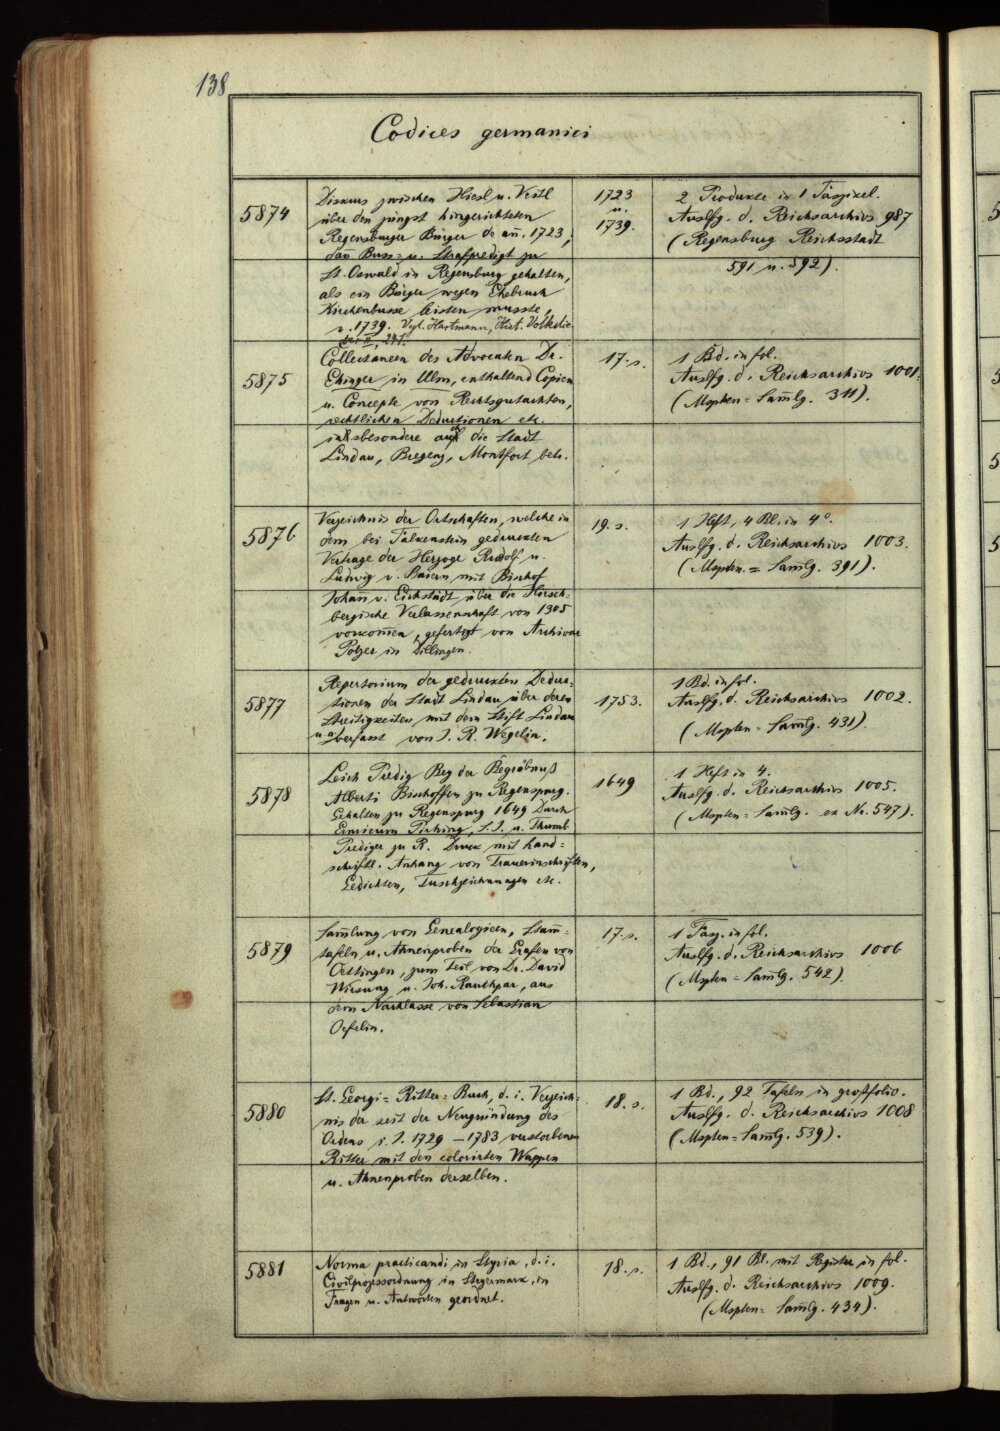 138
Codices germanici
5874
Diskurs zwischen Hiesl u. Veitl
über den jüngst hingerichteten
Regensburger Bürger de añ. 1723;
dañ Buss= u. Strafpredigt zu
St. Oswald in Regensburg gehalten,
als ein Bürger wegen Ehebruch
Kirchenbusse leisten musste,
v. 1739. Vgl. Hartmann, Hist. Volkslie-
der II, 241.
1723
u.
1739.
2 Produkte in 1 Faszikel.
Auslfg. d. Reichsarchivs 987
(Regensburg Reichsstadt
591 u. 592).
5875
Collectaneen des Advocaten Dr.
Ehinger in Ulm, enthaltend Copien
u. Concepte von Rechtsgutachten,
rechtlichen Deductionen etc.
insbesondere die Stadt
Lindau, Bregenz, Montfort betr.
17. s.
1 Bd. in fol.
Auslfg. d. Reichsarchivs 1001.
(Mspten = Sam̄lg. 311).
5876
Verzeichnis der Ortschaften, welche in
dem bei Falkenstein gedruckten
Vertrage der Herzoge Rudolf u.
Ludwig v. Baiern mit Bischof
Johañ v. Eichstädt über die Hirsch-
bergische Verlassenschaft von 1305
vorkom̄en, gefertigt von Archivar
Polzer in Dillingen.
19. s.
1 Heft, 4 Bl. in 4°.
Auslfg. d. Reichsarchivs 1003.
(Mspten. = Sam̄lg. 391).
5877
Repertorium der gedruckten Deduc=
tionen der Stadt Lindau über deren
Streitigkeiten mit dem Stift Lindau
u. a. verfasst von J. R. Wegelin.
1753.
1 Bd. in fol.
Auslfg. d. Reichsarchivs 1002.
(Mspten = Sam̄lg. 431).
5878
Leich Predig Bey der Begräbnuß
Alberti Bischoffen zu Regenspurg.
Gehalten zu Regenspurg 1649 Durch
Emicum Pirhing, S. J. u. Thumb
Prediger zu R. Druck mit hand=
schriftl. Anhang von Trauerinschriften,
Gedichten, Tuschzeichnungen etc.
1649
1 Heft in 4.
Auslfg. d. Reichsarchivs 1005.
(Mspten = Sam̄lg. ex No. 547).
5879
Sam̄lung von Genealogieen, Stam̄=
tafeln u. Ahnenproben der Grafen von
Oettingen, zum Teil von Dr. David
Wiesung u. Joh. Rauchpar, aus
dem Nachlasse von Sebastian
Oefelin.
17. s.
1 Fasz. in fol.
Auslfg. d. Reichsarchivs 1006
(Mspten = Sam̄lg. 542).
5880
St. Georgi = Ritter = Buch, d. i. Verzeich-
nis der seit der Neugründung des
Ordens i. J. 1729 – 1783 verstorbenen
Ritter mit den colorirten Wappen
u. Ahnenproben derselben.
18. s.
1 Bd., 92 Tafeln in großfolio.
Auslfg. d. Reichsarchivs 1008
(Mspten = Sam̄lg. 539).
5881
Norma practicandi in Styria, d. i.
Civilprozessordnung in Steyermark, in
Fragen u. Antworten geordnet.
18. s.
1 Bd., 91 Bl. mit Register, in fol.
Auslfg. d. Reichsarchivs 1009.
(Mspten = Sam̄lg. 434).